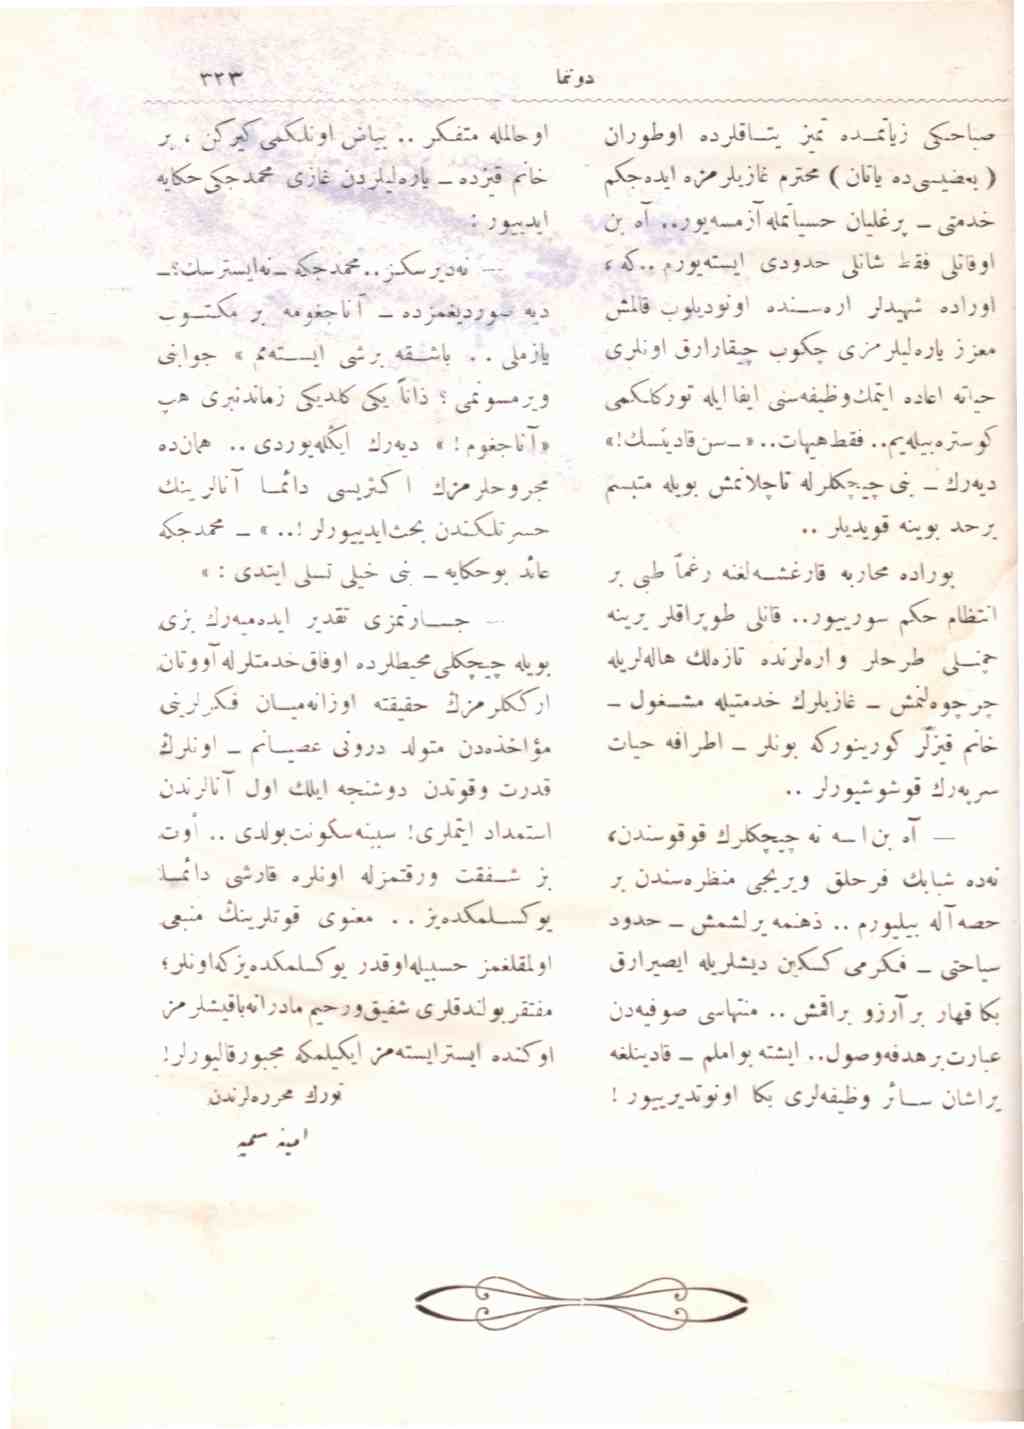 دوننما
٣٢٣
صباحكی زیاتمده تمیز یتاقلرده اوطوران
( بعضیسی ده یاتان ) محترم غازیلرمزه ایده جكم
خدمتی ـ پرغلیان حسیاتمله آزمسه یور.. آه بن
اوقانلی فقط شانلی حدودی ایسته یورم ..كه ،
اوراده شهیدلر اره سنده اونودیلوب قالمش
معزز یاره لیلرمزی چكوب چیقارارق اونلری
حیاته اعاده ایتمك وظیفه سنی ایفا ایله توركلكمی
كوستره بیله یم.. فقط هیهات.. « ـ سن قادینسك! »
دیه رك ـ بنی چیچكلرله تاجلانمش بویله متبسم
برحد بوینه قویدیلر ..
بوراده محاربه قارغشه لغنه رغماً طبی بر
انتظام حكم سورییور.. قانلی طوپراقلر یرینه
چمنلی طرحلر واره لرنده تازه لك هاله لریله
چرچوه لنمش ـ غازیلرك خدمتیله مشغول ـ
خانم قیزلر كورینوركه بونلر ـ اطرافه حیات
سرپه رك قوشوشیورلر ..
— آه بن ایسه نه چیچكلرك قوقوسندن،
نه ده شبابك فرحلق ویریجی منظره سندن بر
حصه آله بیلیورم .. ذهنمه یرلشمش ـ حدود
سیاحتی ـ فكرمی كسكین دیشلریله ایصیرارق
بكا قهار بر آرزو براقمش .. منتهاسی صوفیه دن
عبارت بر هدفه وصول.. ایشته بو املم ـ قادینلغه
یراشان سائر وظیفه لری بكا اونوتدیرییور !
اوحالمله متفكر .. بیاض اونلكمی كیركن ، بر
خانم قیزده ـ یاره لیلردن غازی محمدجكی حكایه
ایدییور :
— نه دیرسكز .. محمدجكه ـ نه ایسترسك؟ ـ
دیه صوردیغمزده ـ آناجغومه بر مكتوب
یازملی .. باشقه برشی ایسته مم » جوابنی
ویرمسونمی ؟ ذاتاً یكی كلدیكی زماندنبری هپ
«آناجغوم! » دیه رك ایكله یوردی .. همان ده
مجروحلرمزك اكثریسی دائما آنالرینك
حسرتلكندن بحث ایدییورلر !.. » ـ محمدجكه
عائد بوحكایه ـ بنی خیلی تسلی ایتدی : »
— جسارتمزی تقدیر ایده میه رك بزی
بویله چیچكلی محیطلرده اوفاق خدمتلرله آووتان
ارككلرمزك حقیقته اوزانه میان فكرلرینی
مؤاخذه دن متولد درونی عصیانم ـ اونلرك
قدرت وقوتدن دوشنجه ایلك اول آنالرندن
استمداد ایتملری! سببنه سكونت بولدی .. اوت
بز شفقت ورقتمزله اونلره قارشی دائما
یوكسلمكده یز .. معنوی قوتلرینك منبعی
اولمقلغمز حسبیله اوقدر یوكسلمكده یزكه اونلر؛
مفتقر بولندقلری شفیق ورحیم مادرانه باقیشلرمز
اوكنده ایستر ایسته مز ایكیلمكه مجبور قالیورلر!
تورك محرره لرندن
امینه سمیه